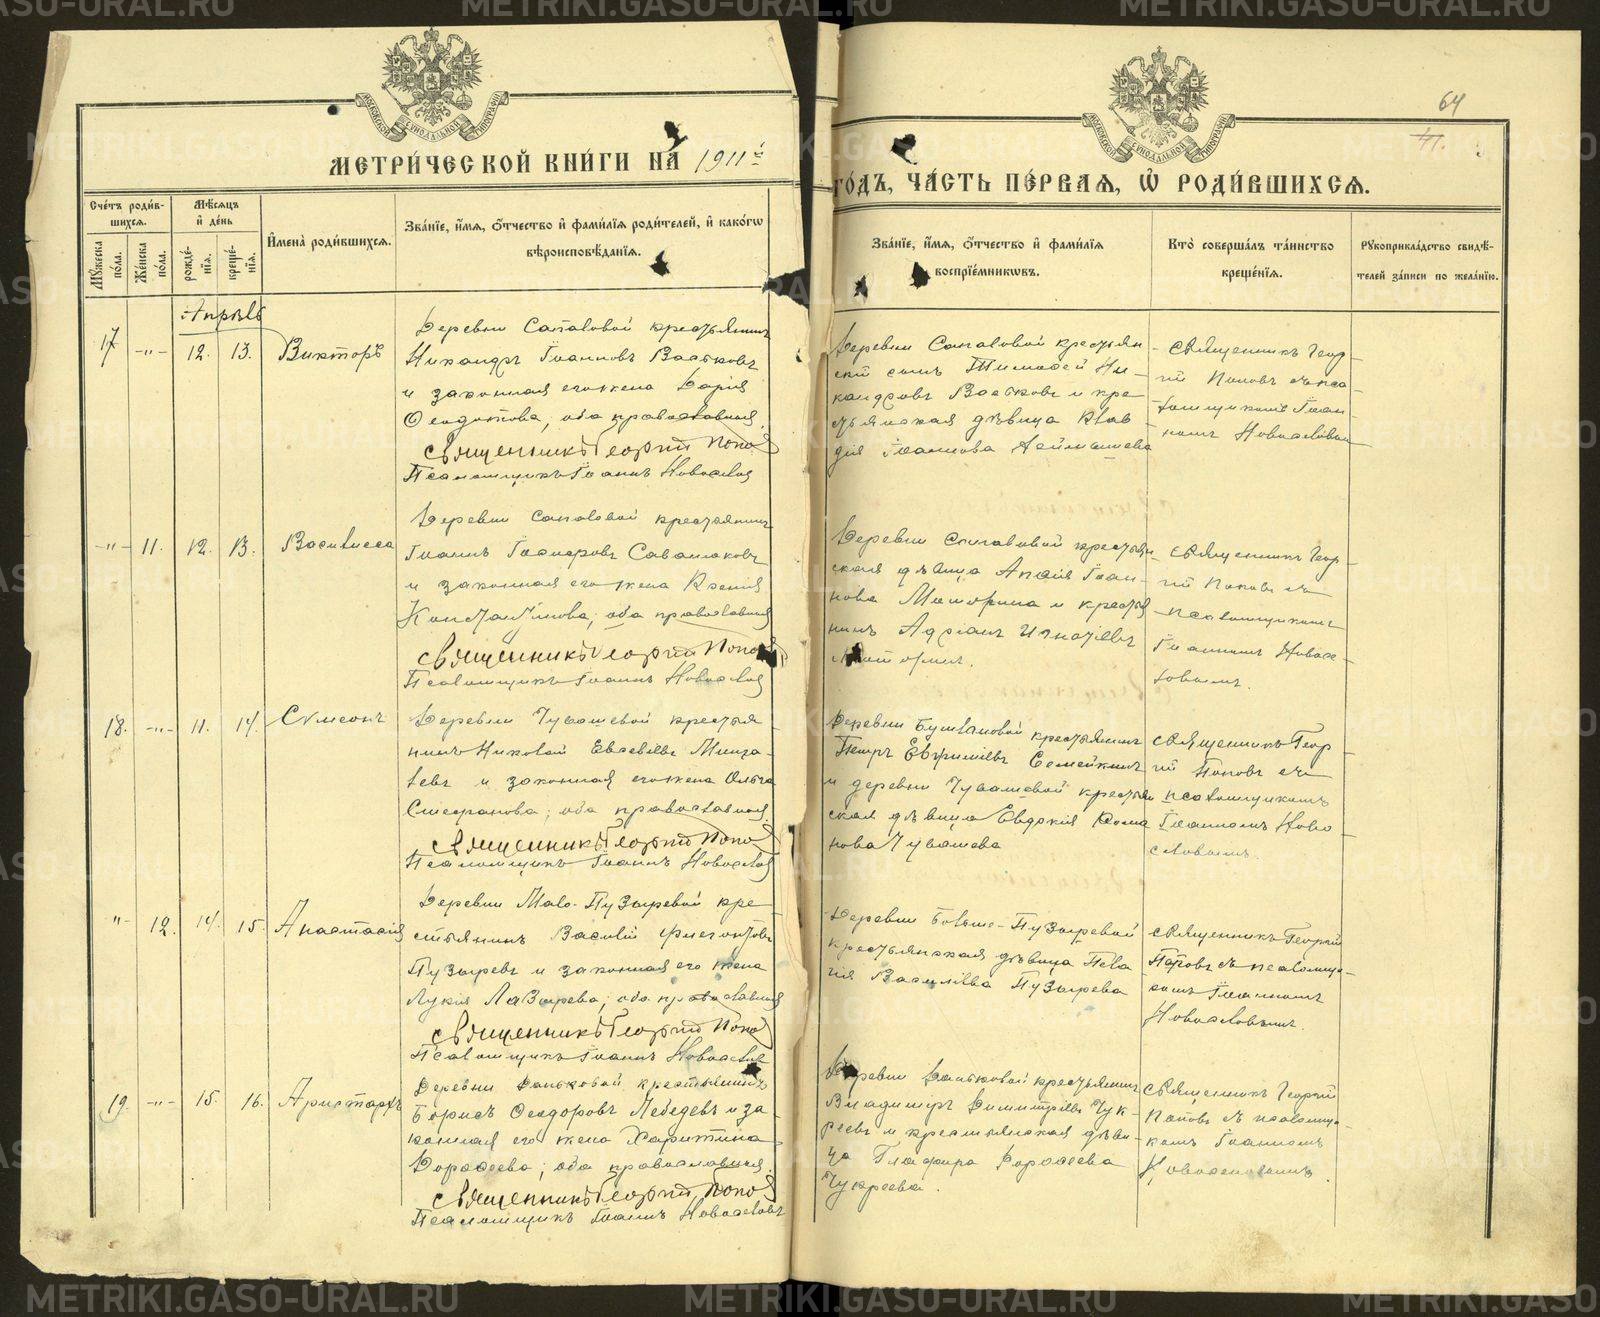 МЕТРИ́ЧЕСКОЙ КНИ́ГИ НА 1911 й
ГО́ДЪ, ЧА́СТЬ ПЕ́РВАЯ, Ѡ҆ РОДИ́ВШИХСЯ.
64
Сче́тъ роди́в-
шихся.
Мѣ́сяцъ
и҆ де́нь
Мꙋ́жеска
по́ла.
Же́нска
по́ла.
рожде́-
нїя.
креще́-
нїя.
И҆мена̀ роди́вшихся.
Зва́нїе, и҆́мя, ѻ҆́тчество и҆ фами́лїя роди́телей, и҆ како́гѡ
вѣроисповѣ́данїя.
Зва́нїе, и҆́мя, ѻ҆́тчество и҆ фами́лїя
воспрїе́мникѡвъ.
Кто̀ соверша́лъ та́инство
креще́нїя.
Рꙋкоприкла́дство свидѣ́-
телей за́писи по жела́нїю.
Апрѣль
17
-"-
12.
13.
Викторъ
Деревни Сапаловой крестьянинъ
Никандръ Іоанновъ Вастковъ
и законная его жена Дарія
Ѳеодотова, оба православныя.
Священникъ Георгій Попов
Псаломщикъ Іоаннъ Новоселов
Деревни Сапаловой крестьян-
скій сынъ Тимофей Ни-
кандровъ Вастковъ и кре-
стьянская дѣвица Клав-
дія Іоаннова
Священникъ Геор-
гій Поповъ съ пса-
ломщикомъ Іоан-
номъ Новоселовымъ
-"-
11.
12.
13.
Василисса
Деревни Сапаловой крестьянинъ
Іоаннъ
и законная его жена Ксенія
Константинова; оба православныя
Священникъ Георгій Попов
Псаломщикъ Іоаннъ Новоселов
Деревни Сапаловой крестьян-
ская дѣвица Іоан-
нова и крестья-
нинъ Адріанъ Игнатіевъ
Священникъ Геор-
гій Поповъ съ
псаломщикомъ
Іоанномъ Новосе-
ловымъ.
18.
-"-
11.
14.
Сѵмеонъ
Деревни Чувашевой крестья-
нинъ Николай Евсевіевъ Минга-
левъ и законная его жена Ольга
Стефанова; оба православныя.
Священникъ Георгій Попов
Псаломщикъ Іоаннъ Новоселов
Деревни крестьянинъ
Петръ Евфиміевъ Семейкинъ
и деревни Чувашевой крестьян-
ская дѣвица Евдокія
нова Чувашева
Священникъ Геор-
гій Поповъ съ
псаломщикомъ
Іоанномъ Ново-
селовымъ.
"
12.
14.
15.
Анастасія
Деревни Мало-Пузыревой кре-
стьянинъ Василій Фигонтовъ
Пузыревъ и законная его жена
Лукія Лазарева; оба православныя
Священникъ Георгій Попов
Псаломщикъ Іоаннъ Новоселов
Деревни Больше-Пузыревой
крестьянская дѣвица Пела-
гія Василіева Пузырева
Священникъ Георгій
Поповъ съ псаломщи-
комъ Іоанномъ
Новоселовымъ.
19.
-"-
15.
16.
Аристархъ
Деревни Даньковой крестьянинъ
Борисъ Ѳеодоровъ Лебедевъ и за-
конная его жена Харитина
Дороѳеева; оба православныя.
Священникъ Георгій Попов
Псаломщикъ Іоаннъ Новоселовъ
Деревни Даньковой крестьянинъ
Владимиръ Димитріевъ Чук-
реевъ и крестьянская дѣви-
ца Глафира Дороѳеева
Чукреева.
Священникъ Георгій
Поповъ съ псаломщи-
комъ Іоанномъ
Новоселовымъ.
METRIKI.GASO-URAL.RU